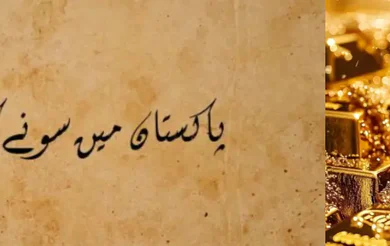 پاکستان میں سونے